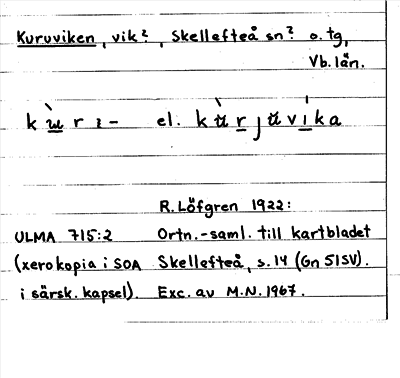 Kuruviken, vik?, Skellefteå sn? o. tg,
Vb. län.
kùrı- el. kùrjʉvíka
R. Löfgren 1922:
ULMA 715:2 Ortn.-saml. till kartbladet
(xerokopia i SOA Skellefteå, s. 14 (Gn 51SV).
i särsk. kapsel). Exc. av M.N. 1967.